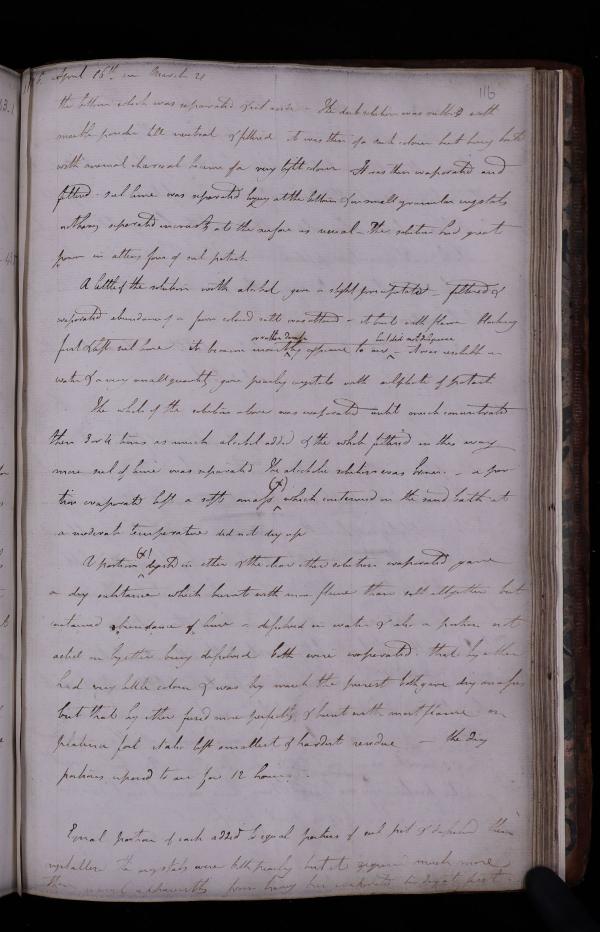 April 15th
116
the bottom which was separated & set aside - The dark solution was rubbed with
marble powder till neutral & filtered it was then of a dark colour but being
with animal charcoal became of a very light colour It was then evaporated and
filtered - sul lime was separated at the bottom & in small granular crystals
nothing separated at the surface as usual - The solution had great
power in altering form of sul potash
A little of the solution with alcohol gave a slight precipitate - filtered &
evaporated abundance of a colored salt was - it burnt with flame blackning
first & left sul lime it became exposure to air - It was soluble in
or rather damp
but did not deliquesce
water & a very small quantity gave pearly crystals with sulphate of potash
The whole of the solution above was evaporated until much concentrated
then 3 or 4 times as much alcohol added & the whole filtered in this way
more sul of lime was separated The alcoholic solution was brown - a por
tion evaporated left a soft mass (X) which continued on the sand bath at
a moderate temperature did not dry up
A portion (X) digested in ether & the clear ether solution evaporated gave
a dry substance which burnt with more flame than salt altogether but
contained abundance of lime - dissolved in water & also a portion not
acted on by ether being dissolved both were evaporated that by ether
had very little colour & was by much the purest both gave dry masses
but that by ether fused more perfectly & burnt with most flame on
platina foil & also left smallest & hardest residue - the dry
portions exposed to air for 12 hours.
Equal portion of each added to equal portions of sul pot & dissolved then
crystallised The crystals were both pearly but it required much more